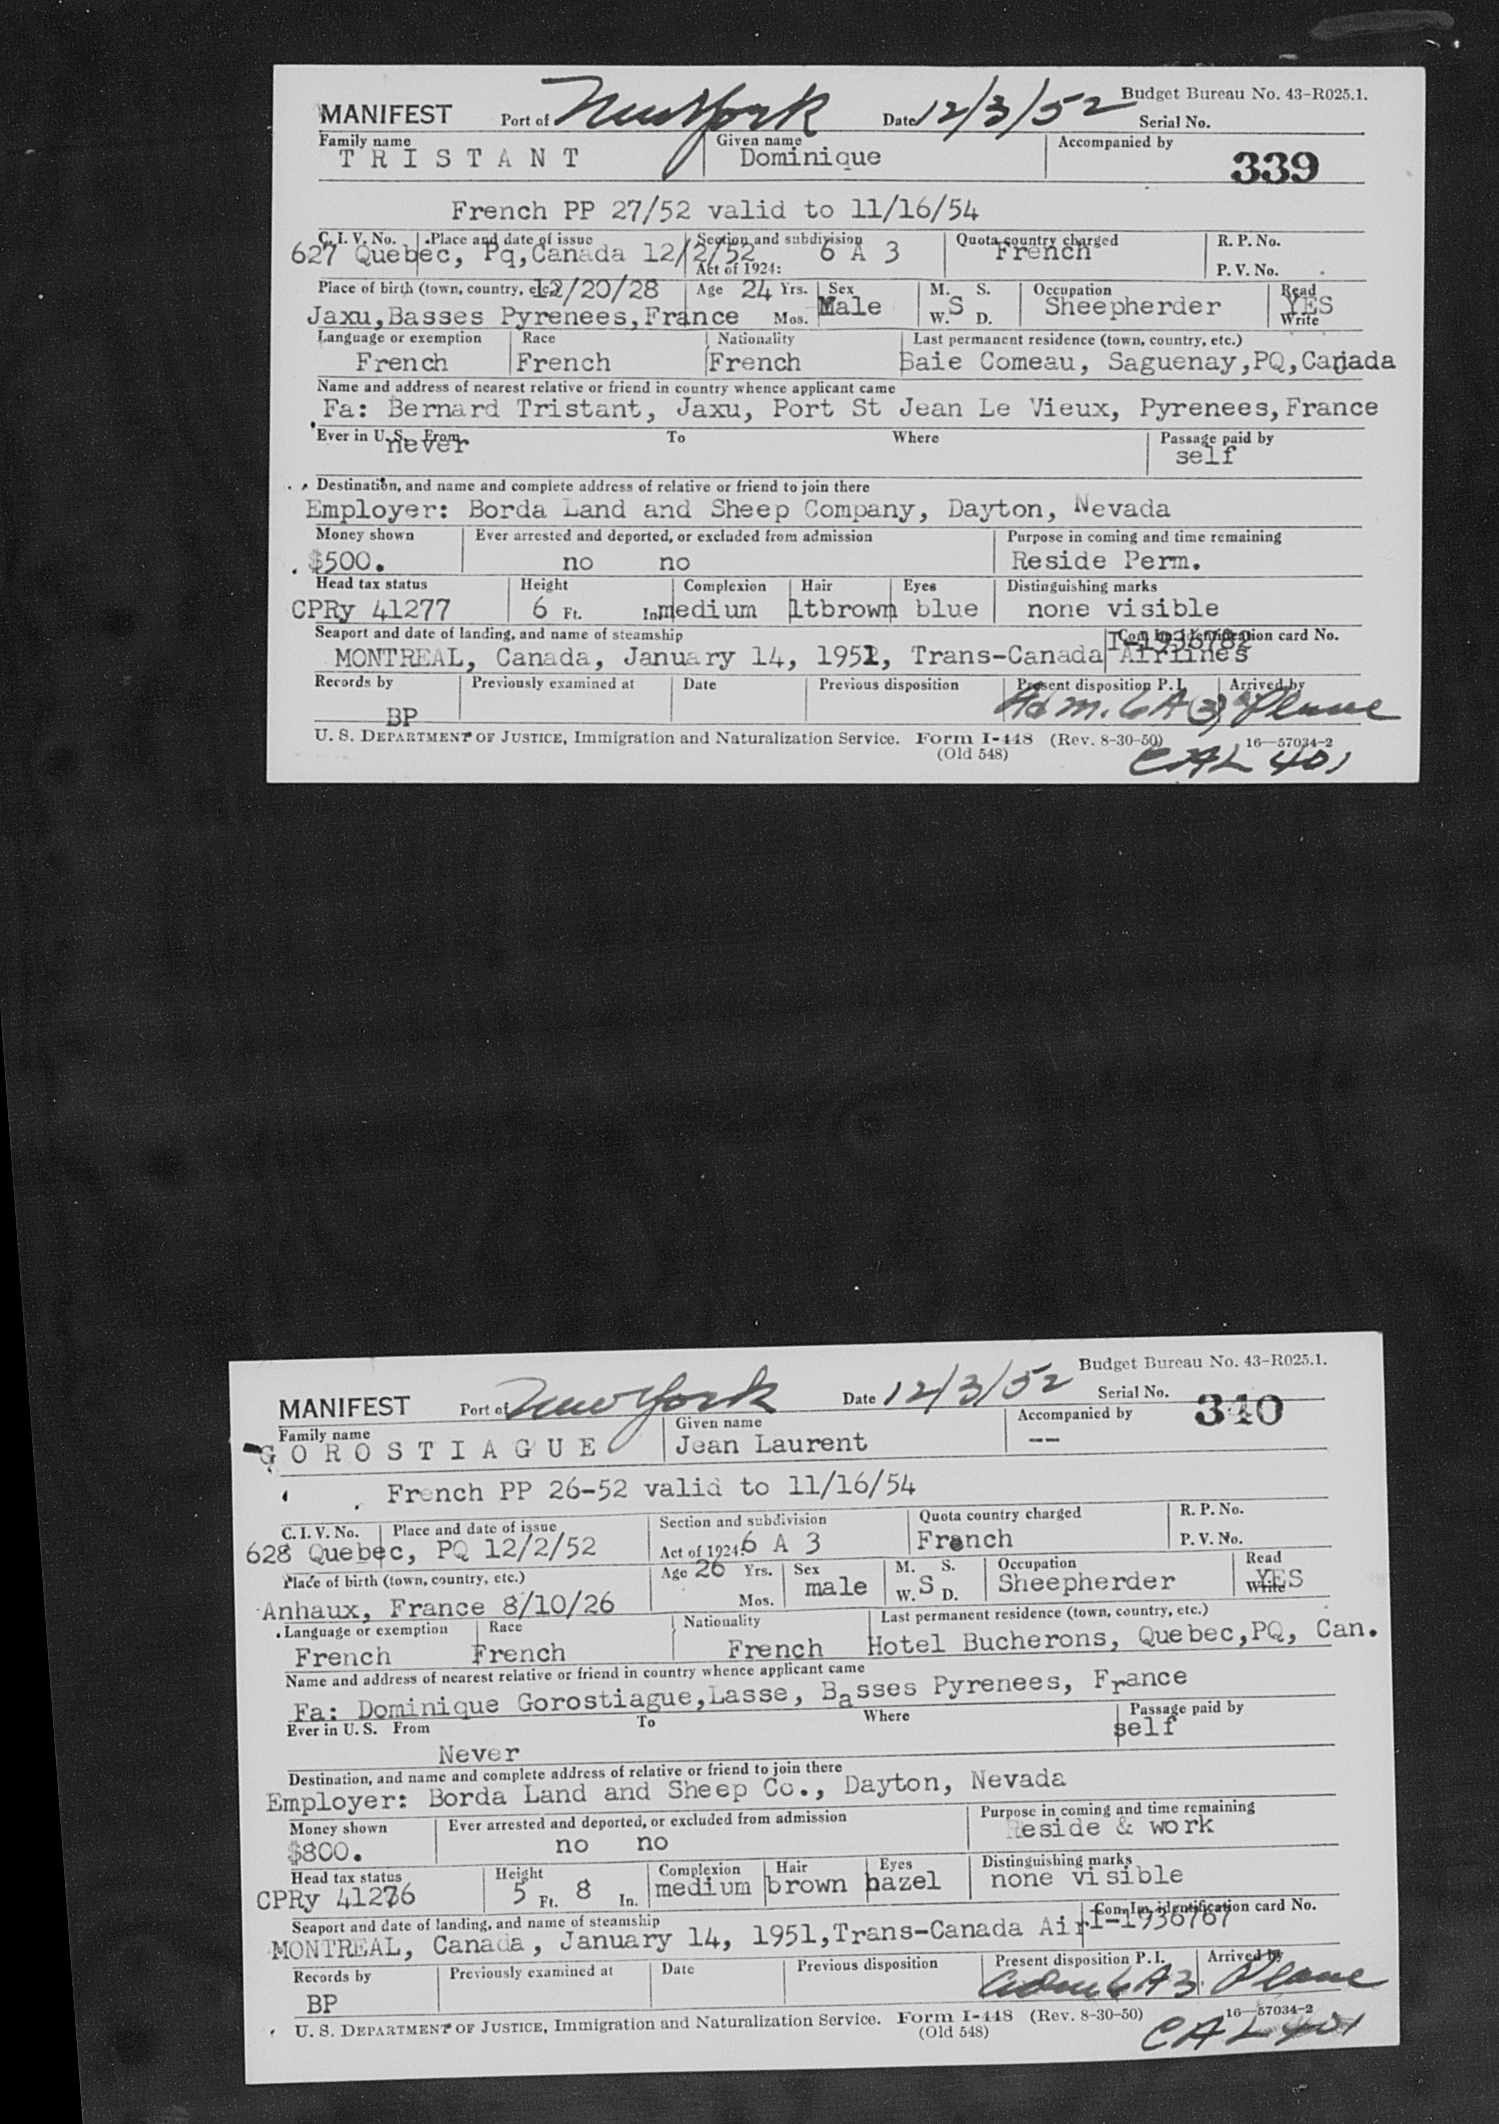 MANIFEST Port of New York Date 12/3/52 Budget Bureau No. 43-R025.1.
Serial No. 339
Family name TRISTANT Given name Dominique Accompanied by
French PP 27/52 valid to 11/16/54
C. I. V. No. Place and date of issue Section and subdivision Quota country charged R. P. No.
627 Quebec, Pq, Canada 12/2/52 Act of 1924: 6 A 3 French P. V. No.
Place of birth (town, country, etc.) 12/20/28 Age 24 Yrs. Sex M. S. Occupation Read
Jaxu, Basses Pyrenees, France Mos. Male W. S D. Sheepherder YES Write
Language or exemption Race Nationality Last permanent residence (town, country, etc.)
French French French Baie Comeau, Saguenay, PQ, Canada
Name and address of nearest relative or friend in country whence applicant came
Fa: Bernard Tristant, Jaxu, Port St Jean Le Vieux, Pyrenees, France
Ever in U. S. From never To Where Passage paid by
self
Destination, and name and complete address of relative or friend to join there
Employer: Borda Land and Sheep Company, Dayton, Nevada
Money shown Ever arrested and deported, or excluded from admission Purpose in coming and time remaining
$500. no no Reside Perm.
Head tax status Height Complexion Hair Eyes Distinguishing marks
CPRy 41277 6 Ft. In. medium ltbrown blue none visible
Seaport and date of landing, and name of steamship Com Im. identification card No.
MONTREAL, Canada, January 14, 1951, Trans-Canada Airlines
Records by Previously examined at Date Previous disposition Present disposition P. I. Arrived by
BP Adm. 6A(3) Plane
U. S. DEPARTMENT OF JUSTICE, Immigration and Naturalization Service. Form I-448 (Rev. 8-30-50) 16—57034-2
(Old 548) CAL 401
MANIFEST Port of New York Date 12/3/52 Budget Bureau No. 43-R025.1.
Serial No. 340
Family name GOROSTIAGUE Given name Jean Laurent Accompanied by --
French PP 26-52 valid to 11/16/54
C. I. V. No. Place and date of issue Section and subdivision Quota country charged R. P. No.
628 Quebec, PQ 12/2/52 Act of 1924: 6 A 3 French P. V. No.
Place of birth (town, country, etc.) Age 26 Yrs. Sex M. S. Occupation Read
Anhaux, France 8/10/26 Mos. male W. S D. Sheepherder YES Write
Language or exemption Race Nationality Last permanent residence (town, country, etc.)
French French French Hotel Bucherons, Quebec, PQ, Can.
Name and address of nearest relative or friend in country whence applicant came
Fa: Dominique Gorostiague, Lasse, Basses Pyrenees, France
Ever in U. S. From To Where Passage paid by
Never self
Destination, and name and complete address of relative or friend to join there
Employer: Borda Land and Sheep Co., Dayton, Nevada
Money shown Ever arrested and deported, or excluded from admission Purpose in coming and time remaining
$800. no no Reside & work
Head tax status Height Complexion Hair Eyes Distinguishing marks
CPRy 41276 5 Ft. 8 In. medium brown hazel none visible
Seaport and date of landing, and name of steamship Com Im. identification card No.
MONTREAL, Canada, January 14, 1951, Trans-Canada Air I-1936767
Records by Previously examined at Date Previous disposition Present disposition P. I. Arrived by
BP Adm 6A3. Plane
U. S. DEPARTMENT OF JUSTICE, Immigration and Naturalization Service. Form I-448 (Rev. 8-30-50) 16—57034-2
(Old 548) CAL 401